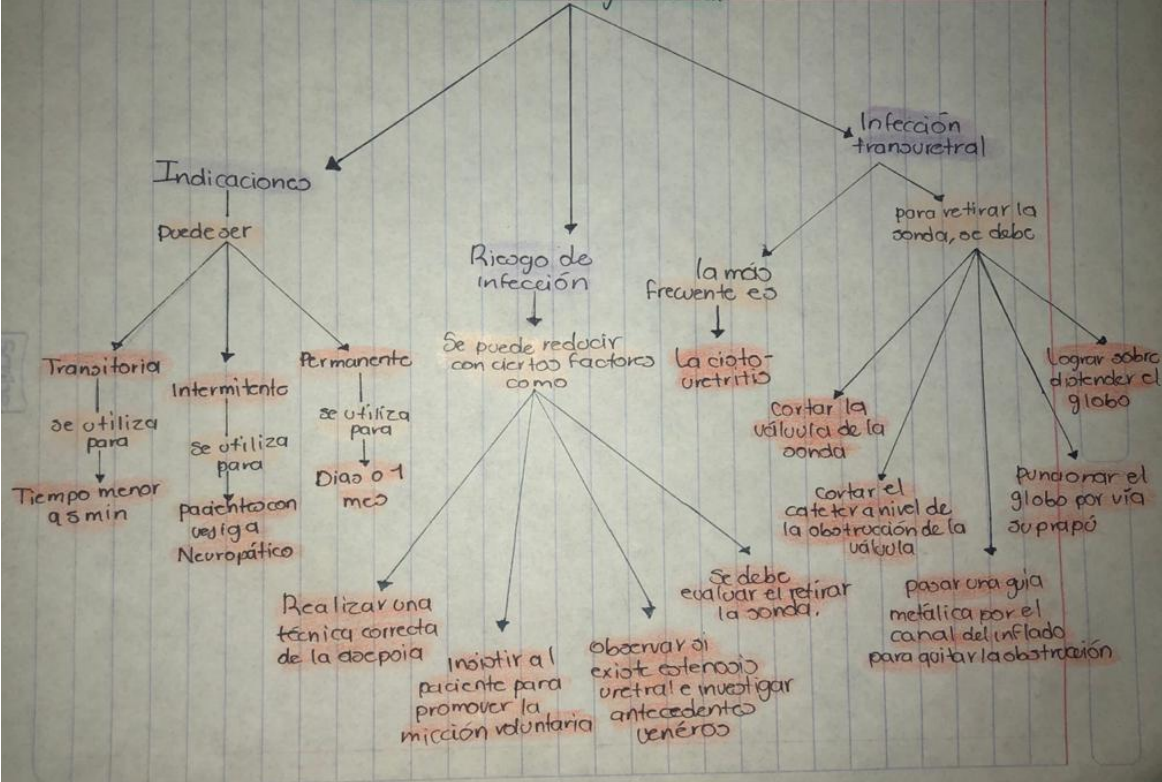 Indicaciones
Puede ser
Transitoria
se utiliza
para
Tiempo menor
a 5 min
Intermitente
se utiliza
para
pacientes con
vejiga
Neuropático
Permanente
se utiliza
para
Dias o 1
mes
Riesgo de
infección
Se puede reducir
con ciertos factores
como
Realizar una
técnica correcta
de la asepsia
Insistir al
paciente para
promover la
micción voluntaria
Observar si
existe estenosis
uretral e investigar
antecedentes
venéros
Se debe
evaluar el retirar
la sonda.
Infección
transuretral
la más
frecuente es
La cisto-
uretritis
para retirar la
sonda, se debe
cortar la
válvula de la
sonda
cortar el
cateter a nivel de
la obstrucción de la
válvula
pasar una guia
metálica por el
canal del inflado
para quitar la obstrucción
Puncionar el
globo por vía
suprapú
Lograr sobre
distender el
globo